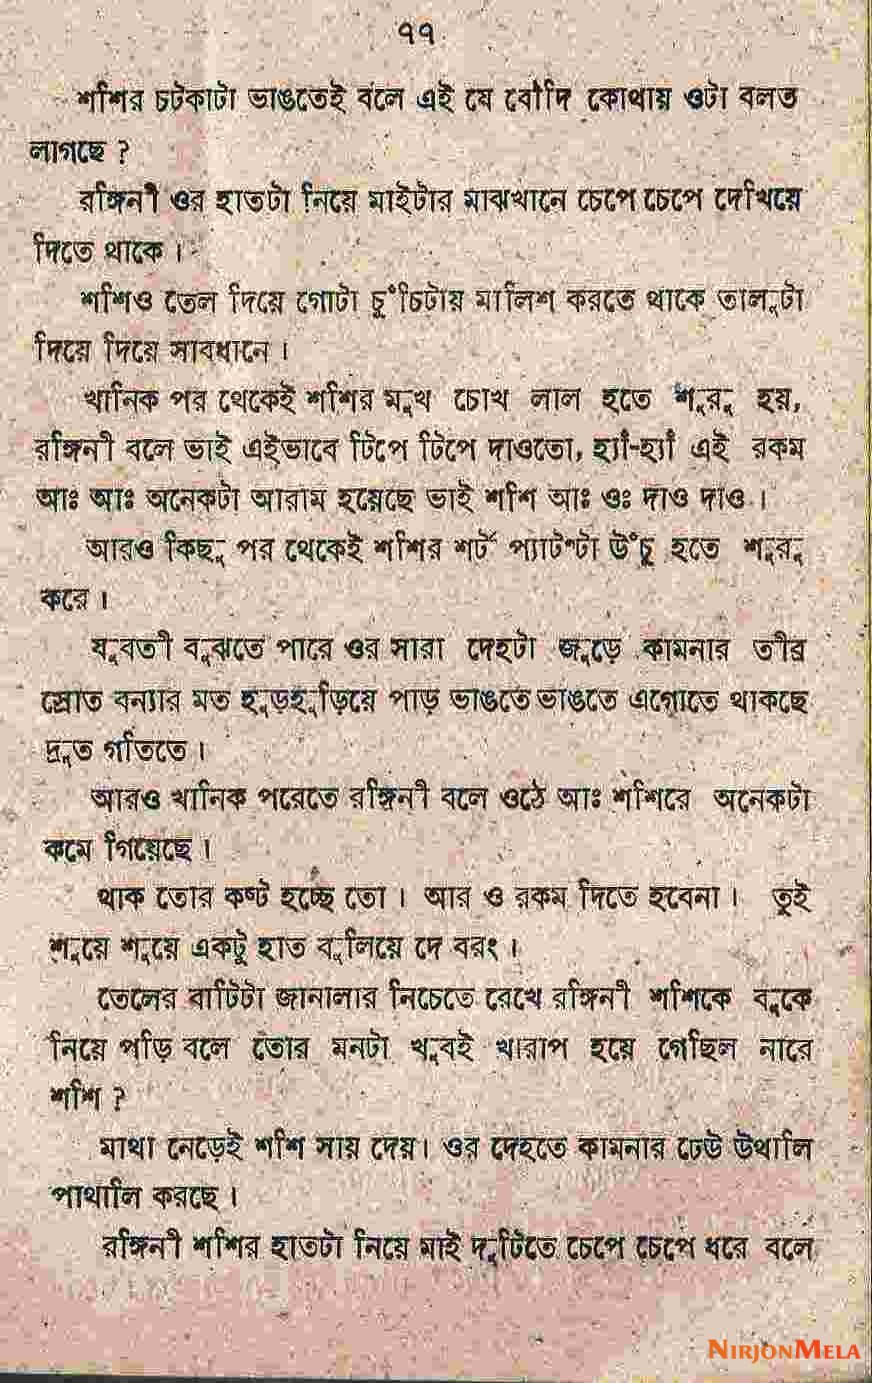 ৭৭
শশির চটকাটা ভাঙতেই বলে এই যে বৌদি কোথায় ওটা বলত
লাগছে ?
রঙ্গিনী ওর হাতটা নিয়ে মাইটার মাঝখানে চেপে চেপে দেখিয়ে
দিতে থাকে ।
শশিও তেল দিয়ে গোটা চুঁচিটায় মালিশ করতে থাকে তালুটা
দিয়ে দিয়ে সাবধানে ।
খানিক পর থেকেই শশির মুখ চোখ লাল হতে শুরু হয়,
রঙ্গিনী বলে ভাই এইভাবে টিপে টিপে দাওতো, হ্যাঁ-হ্যাঁ এই রকম
আঃ আঃ অনেকটা আরাম হয়েছে ভাই শশি আঃ ওঃ দাও দাও ।
আরও কিছু পর থেকেই শশির শর্ট প্যাণ্টটা উঁচু হতে শুরু
করে ।
যুবতী বুঝতে পারে ওর সারা দেহটা জুড়ে কামনার তীব্র
স্রোত বন্যার মত হুড়হুড়িয়ে পাড় ভাঙতে ভাঙতে এগোতে থাকছে
দ্রুত গতিতে ।
আরও খানিক পরেতে রঙ্গিনী বলে ওঠে আঃ শশিরে অনেকটা
কমে গিয়েছে ।
থাক তোর কষ্ট হচ্ছে তো । আর ও রকম দিতে হবেনা । তুই
শুয়ে শুয়ে একটু হাত বুলিয়ে দে বরং ।
তেলের বাটিটা জানালার নিচেতে রেখে রঙ্গিনী শশিকে বুকে
নিয়ে পড়ি বলে তোর মনটা খুবই খারাপ হয়ে গেছিল নারে
শশি ?
মাথা নেড়েই শশি সায় দেয়। ওর দেহতে কামনার ঢেউ উথালি
পাথালি করছে ।
রঙ্গিনী শশির হাতটা নিয়ে মাই দুটিতে চেপে চেপে ধরে বলে
NIRJONMELA